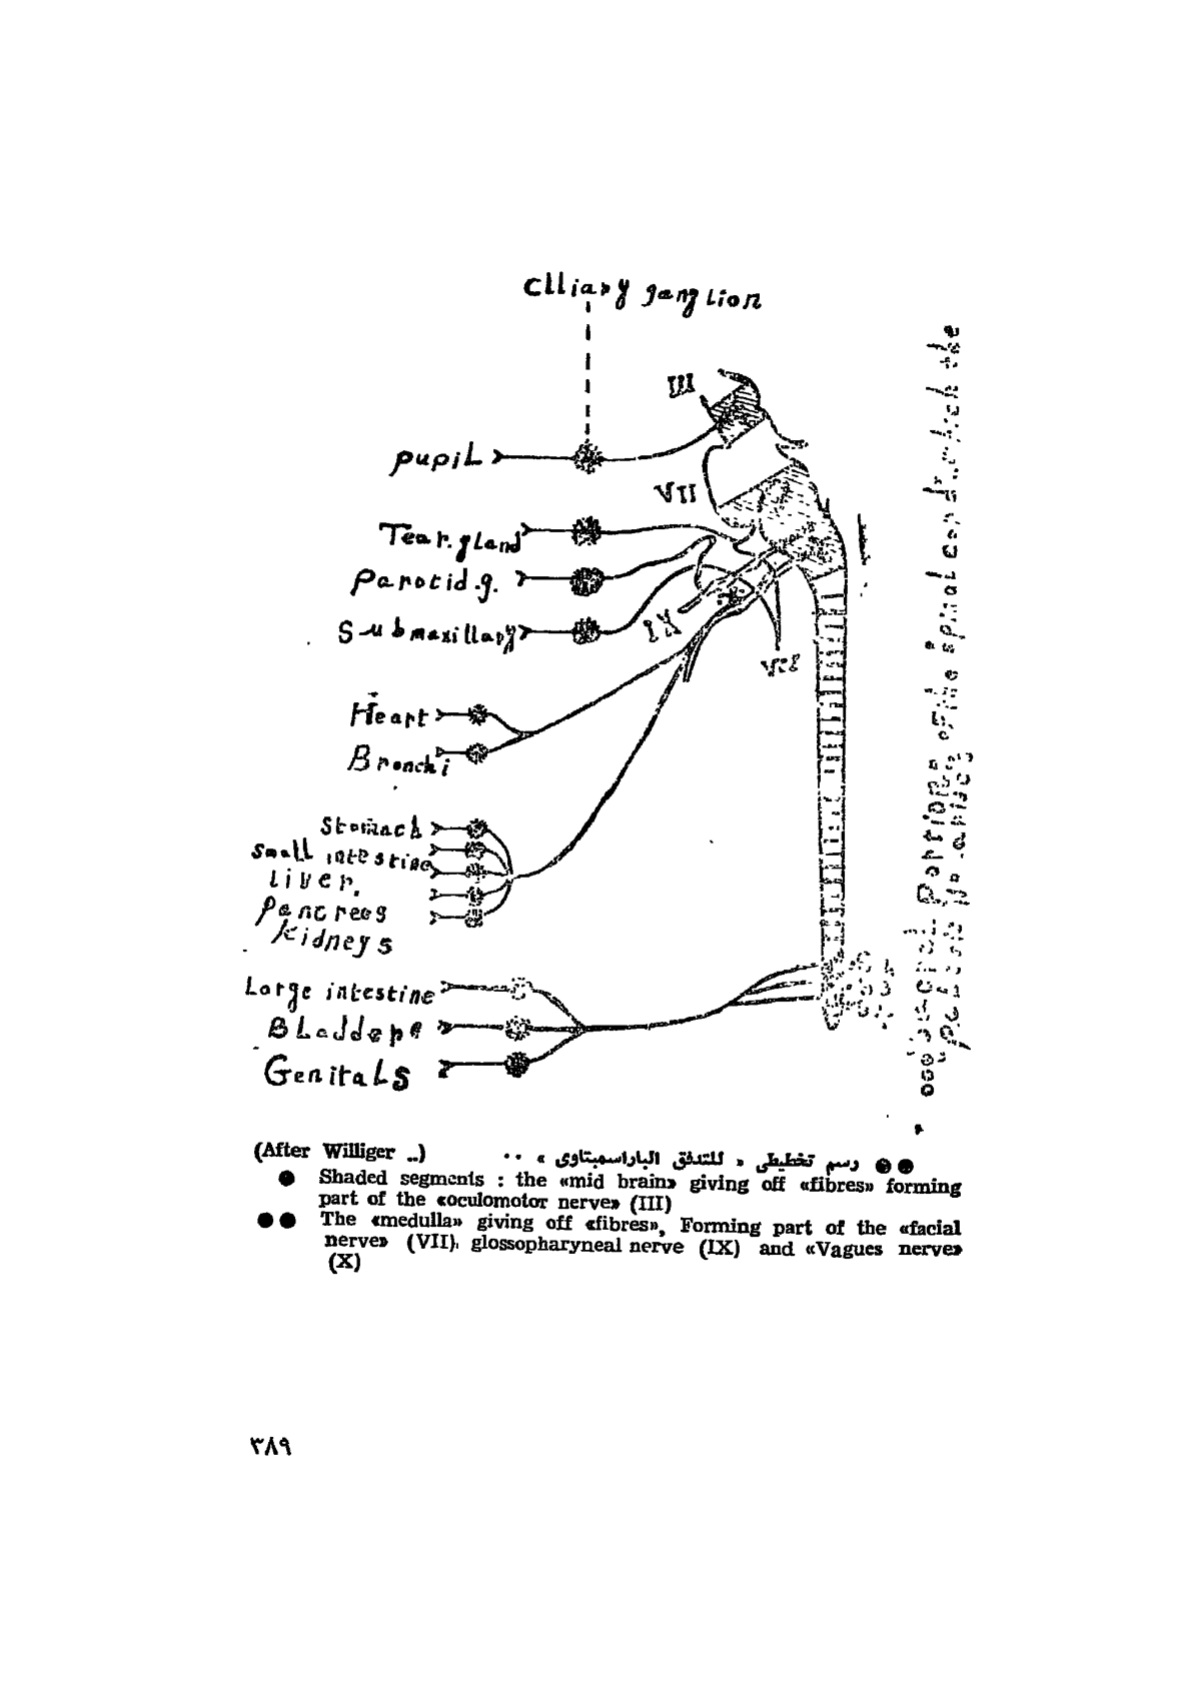 Clliary ganglion
III
pupil
VII
Tear.gland
Parotid.g.
Submaxillary
IX
Heart
Bronchi
Stomach
Small intestine
Liver.
Pancreas
Kidneys
Large intestine
Bladdepe
Genitals
Portions of the spinal cord which the
(After Williger ..)
●● رسم تخطيطى « للتدفق الباراسمبتاوى » ..
● Shaded segments : the «mid brain» giving off «fibres» forming
part of the «oculomotor nerve» (III)
●● The «medulla» giving off «fibres», Forming part of the «facial
nerve» (VII), glossopharyneal nerve (IX) and «Vagues nerve»
(X)
٣٨٩